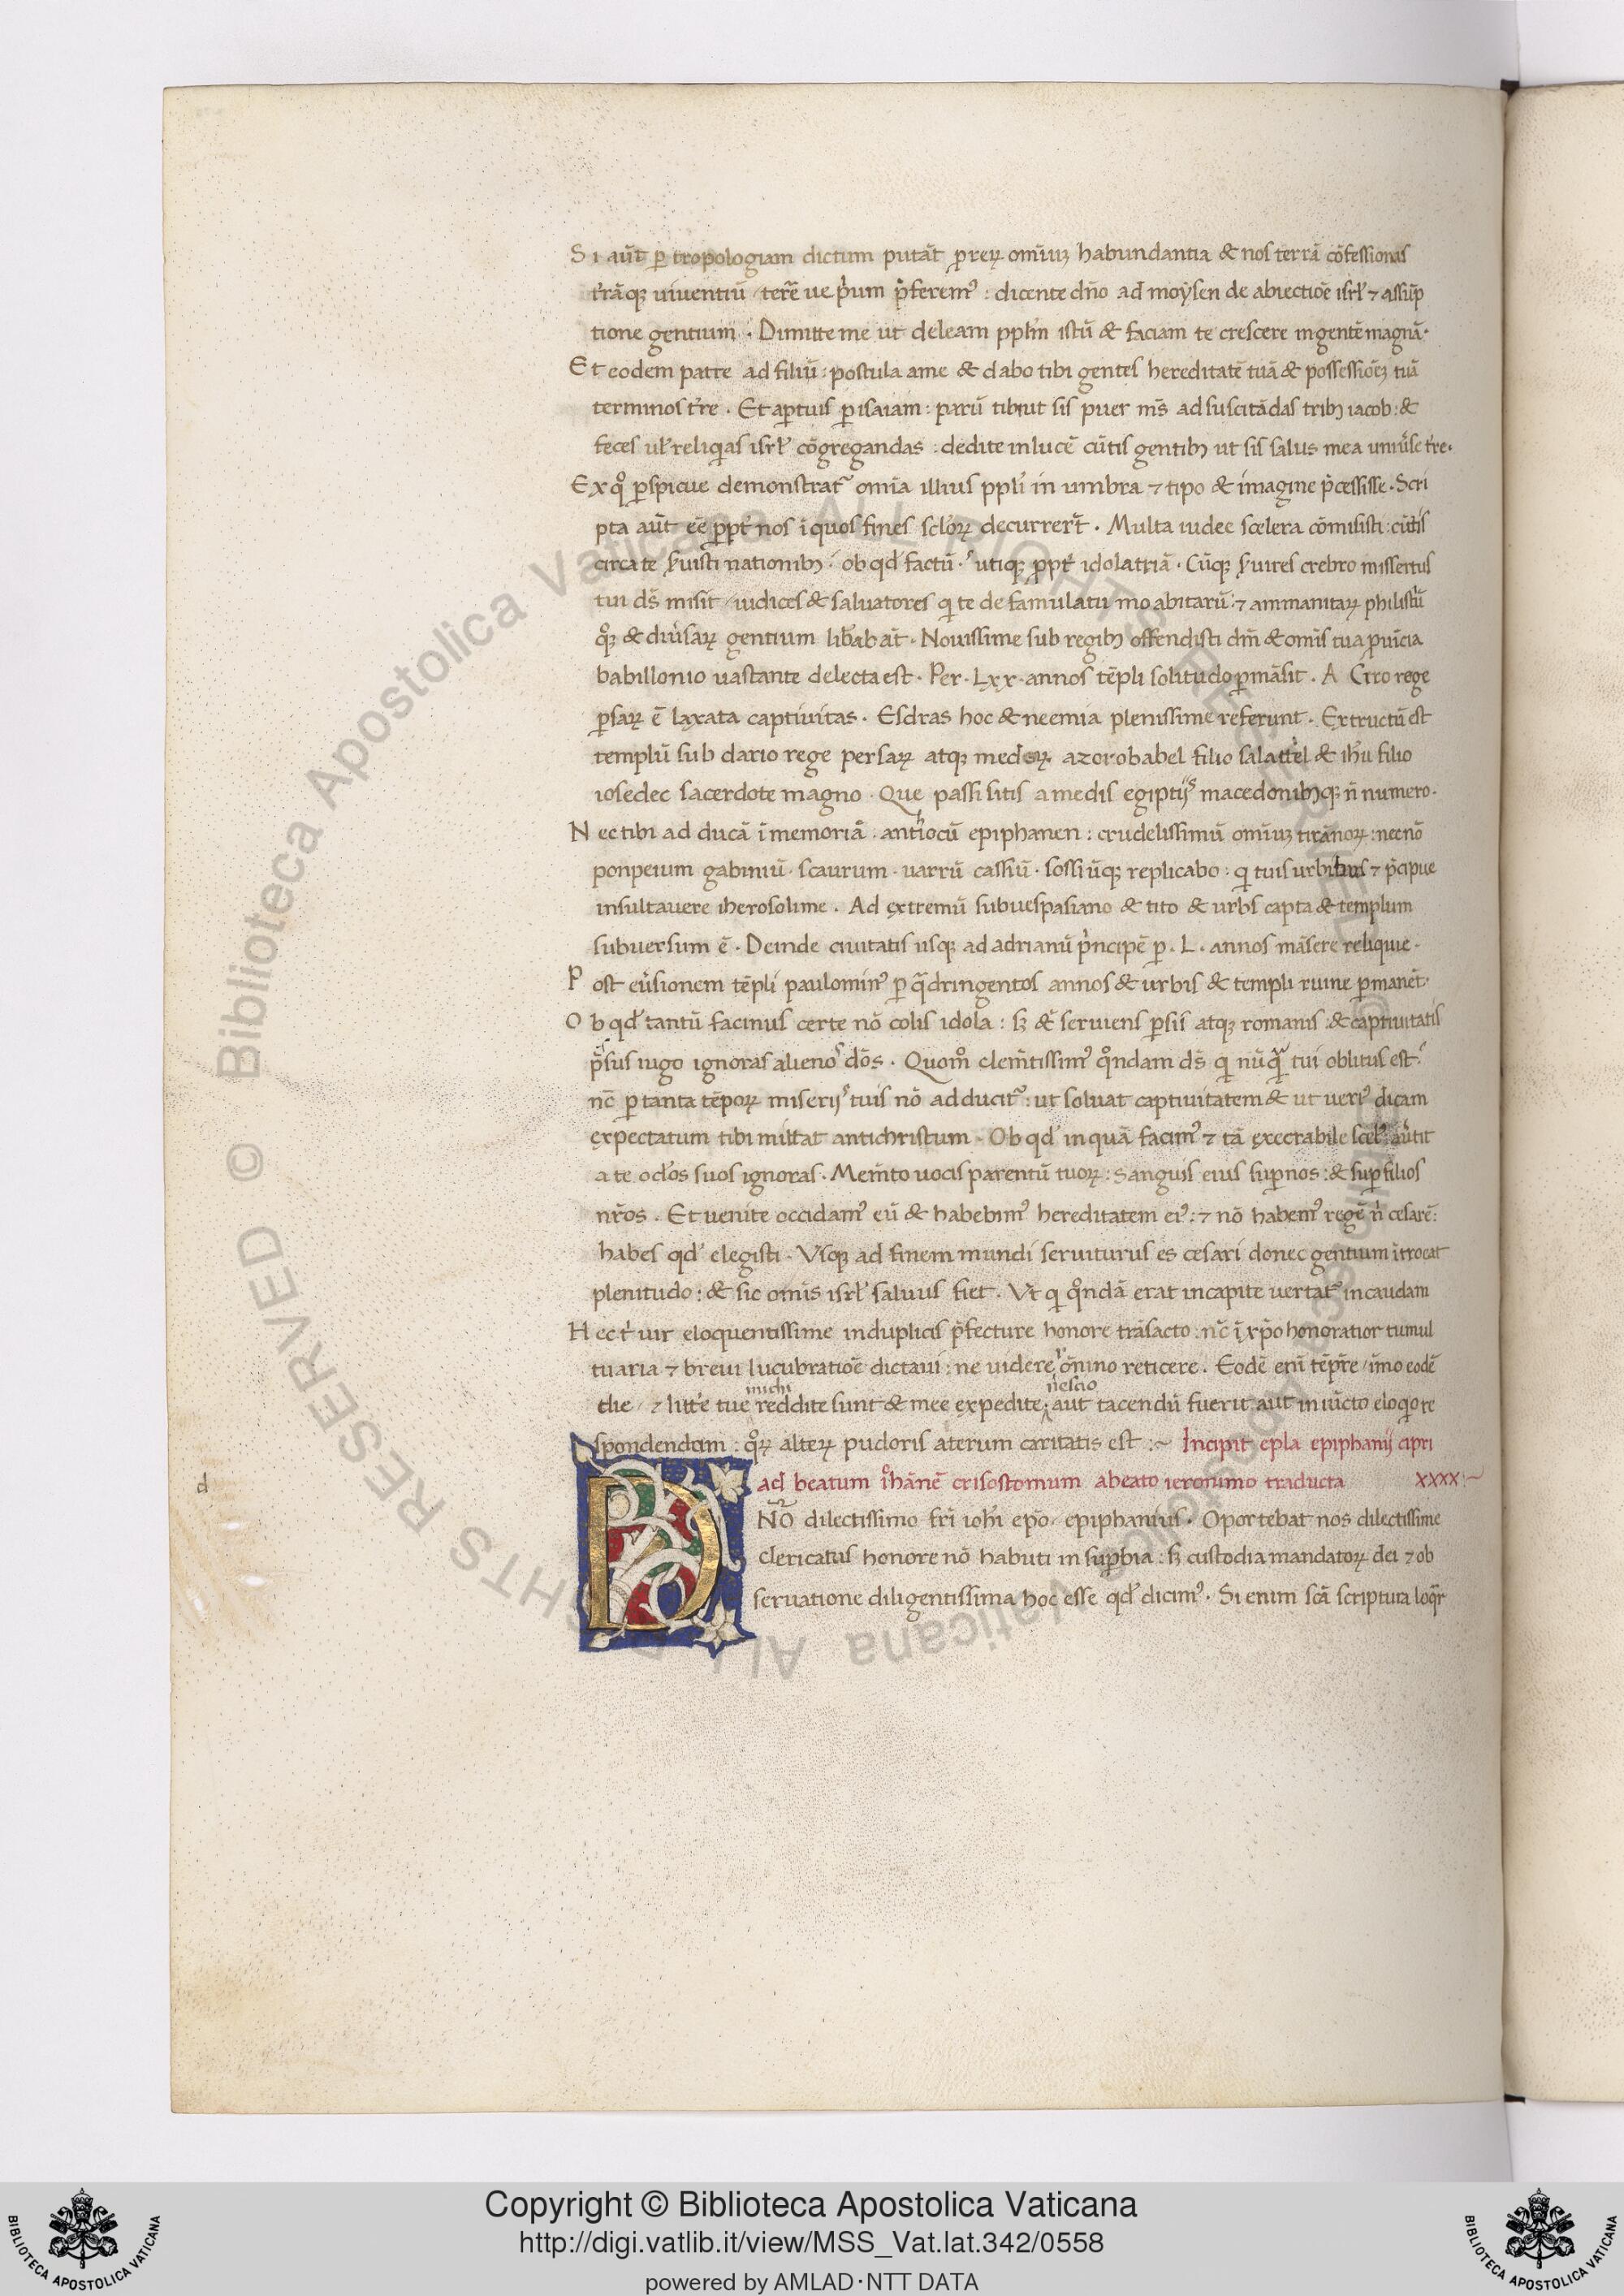 Si aūt ꝑ tropologiam dictum putāt ꝓ reꝝ om̄iuꝫ habundantia & nos terrā cōfessionis
t̓rāqꝫ uiuentiū / terrē ue p̓um p̄ferem᷒ : dicente dn̄o ad moẏsen de abiectiōe isrl̓ ⁊ assūp
tione gentium · Dimitte me ut deleam ppl̄m istū & faciam te crescere in gentē magnā ·
Et eodem patre ad filiū : postula a me & dabo tibi gentes hereditatē tuā & possessiōeꝫ tuā
terminos t̓re · Et aꝑtius ꝑ isaiam : parū tibi ut sis puer m̄s ad suscitādas tribꝫ iacob : &
feces ul̓ reliqias isrl̓ cōgregandas : dedi te in lucē cūtis gentibꝫ ut sis salus mea uniu̓se t̓re ·
Ex qͦ ꝑspicue demonstrat᷒ om̄ia illius ppl̓i in umbra ⁊ tipo & imagine p̄cessisse · Scri
pta aūt eē ꝓpt̓ nos ī quos fines scl̓oꝝ decurrer̄t · Multa iudee scelera cōmisisti : cūtis
circa te s̓uisti nationibꝫ · ob qd̓ factū · utiqꝫ ꝓpt̓ idolatriā · Cūqꝫ s̓uires crebro missertus
tui ds̄ misit / iudices & saluatores qi te de famulatu moabitarū : ⁊ ammanitaꝝ philistiū
qͦꝫ & diu̓saꝝ gentium lib̓abāt · Nouissime sub regibꝫ offendisti dm̄ & om̄is tua ꝓuīcia
babillonio uastante delecta est · Per · Lxx · annos tēpli solitudo ꝑmāsit · A Ciro rege
ꝑsaꝝ ē laxata captiuitas · Esdras hoc & neemia plenissime referunt · Extructū est
templū sub dario rege persaꝝ atqꝫ medoꝝ · a zorobabel filio salattiel & ih̄u filio
iosedec sacerdote magno · Que passi sitis a medis egiptijs macedonibꝫqꝫ n̄ numero ·
Nec tibi ad ducā ī memoriā · antiocū epiphanen : crudelissimū om̄iuꝫ tirānoꝝ : necnō
ponpeium gabiniū · scaurum · uarrū cassiū · sossiūqꝫ replicabo : qi tuis urbibus ⁊ p̄cipue
insultauere iherosolime · Ad extremū sub uespasiano & tito & urbs capta & templum
subuersum ē · Deinde ciuitatis usqꝫ ad adrianū p̓ncipē ꝑ · L · annos māsere reliquie ·
Post eu̓sionem tēpli paulomin᷒ ꝑ qᷓdringentos annos & urbis & templi ruine ꝑmanēt ·
Ob qd̓ tantū facinus certe nō colis idola : sꝫ & serviens ꝑsis atqꝫ romanis : & captiuitatis
p̄sus iugo ignoras alienos dōs · Quomͦ clem̄tissim᷒ qͦndam ds̄ qi nūqᷓ tui oblitus est ·
nc̄ ꝑ tanta tēpoꝝ miserijs tuis nō adducit᷒ : ut soluat captiuitatem & ut ueri᷒ dicam
expectatum tibi mittat antichristum · Ob qd̓ inquā facin᷒ ⁊ tā execrabile scel᷒ au̓tit
a te oclos suos ignoras · Mem̄to uocis parentū tuoꝝ : sanguis eius suꝑ nos : & suꝑ filios
nr̄os · Et uenite occidam᷒ eū & habebim᷒ hereditatem ei᷒ : ⁊ nō habem᷒ regē n̓ cesarē :
habes qd̓ elegisti · Vsqꝫ ad finem mundi seruiturus es cesari donec gentium ītroeat
plenitudo : & sic om̄is isrl̓ saluus fiet · Vt qi qͦndā erat in capite uertat᷒ in caudam
Hec t̓ uir eloquentissime in duplicis p̄fecture honore trāsacto : nc̄ ī xp̄o honoratior tumul
tuaria ⁊ breui lucubratiōe dictaui : ne uiderer ōnino reticere · Eodē eni tēp̄re / īmo eodē
die / ⁊ litt̓e tue michi reddite sunt & mee expedite : nescio aut tacendū fuerit aut in iūcto eloqio re
spondendum : qͦꝝ alteꝝ pudoris aterum caritatis est :~ Incipit epl̄a epiphanij cipri
ad beatum iͦhānē crisostomum a beato ieronimo traducta xxxx :~
d
DN̄O dilectissimo fr̄i ioh̓i ep̄o · epiphanius · Oportebat nos dilectissime
clericatus honore nō habuti in suꝑbia : sꝫ custodia mandatoꝝ dei ⁊ ob
seruatione diligentissima hoc esse qd̓ dicim᷒ · Si enim scā scriptura loqr̄
© Biblioteca Apostolica Vaticana ALL RIGHTS RESERVED
© Biblioteca Apostolica Vaticana ALL RIGHTS RESERVED
Copyright © Biblioteca Apostolica Vaticana
http://digi.vatlib.it/view/MSS_Vat.lat.342/0558
powered by AMLAD·NTT DATA
BIBLIOTECA APOSTOLICA VATICANA
BIBLIOTECA APOSTOLICA VATICANA